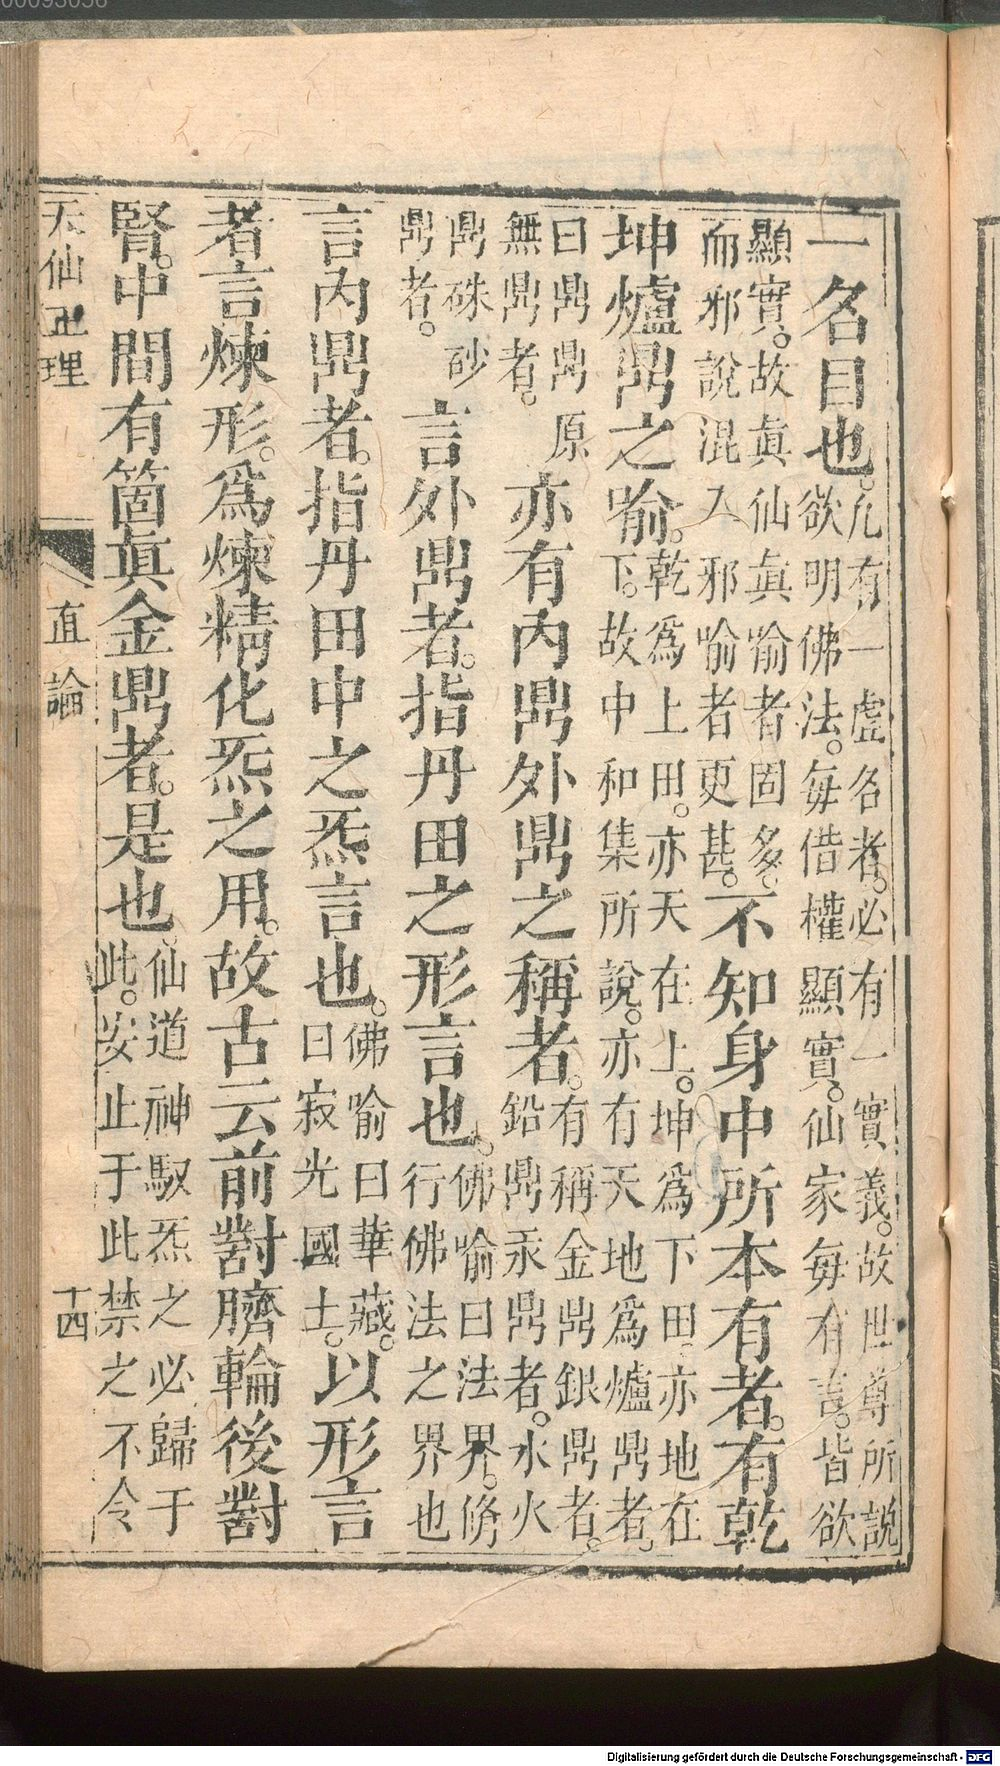 00093056
一名目也。凢有一虛名者。必有一實義。故世尊所說
欲明佛法。每借權顯實。仙家每有言。皆欲
顯實。故眞仙眞喻者固多。
而邪說混入邪喻者更甚。不知身中所本有者。有乾
坤爐鼎之喻。乾爲上田。亦天在上。坤爲下田。亦地在
下。故中和集所說。亦有天地爲爐鼎者。
曰鼎鼎原
無鼎者。亦有內鼎外鼎之稱者。有稱金鼎銀鼎者。
鉛鼎汞鼎者。水火
鼎硃砂
鼎者。言外鼎者。指丹田之形言也。佛喻曰法界。脩
行佛法之界也
言內鼎者。指丹田中之炁言也。佛喻曰華藏。
曰寂光國土。以形言
者言煉形。爲煉精化炁之用。故古云前對臍輪後對
腎。中間有箇眞金鼎者。是也。仙道神馭炁之必歸于
此。安止于此禁之不令
天仙正理 直論 十四
Digitalisierung gefördert durch die Deutsche Forschungsgemeinschaft - DFG